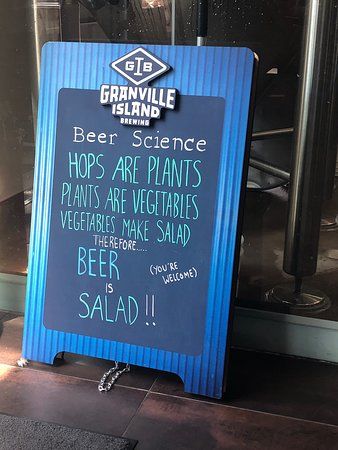 GIB
GRANVILLE
ISLAND
BREWING
Beer Science
HOPS ARE PLANTS
PLANTS ARE VEGETABLES
VEGETABLES MAKE SALAD
THEREFORE.....
BEER
(YOU'RE
WELCOME)
IS
SALAD!!